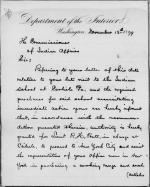 Department of the Interior,
Washington, November 15th, 1879
The Commissioner
of Indian Affairs
Sir:
Referring to your letter of this date
relative to your late visit to the Indian
School at Carlisle Pa. and the required
purchases for said school
immediate action you are hereby
that, in accordance with the recommen-
dation presented therein, authority is hereby
granted for Lieut. R. H. Pratt, in charge at
Carlisle, to proceed to New York City and with
the representation of your office now in
New York in purchasing a working range and such